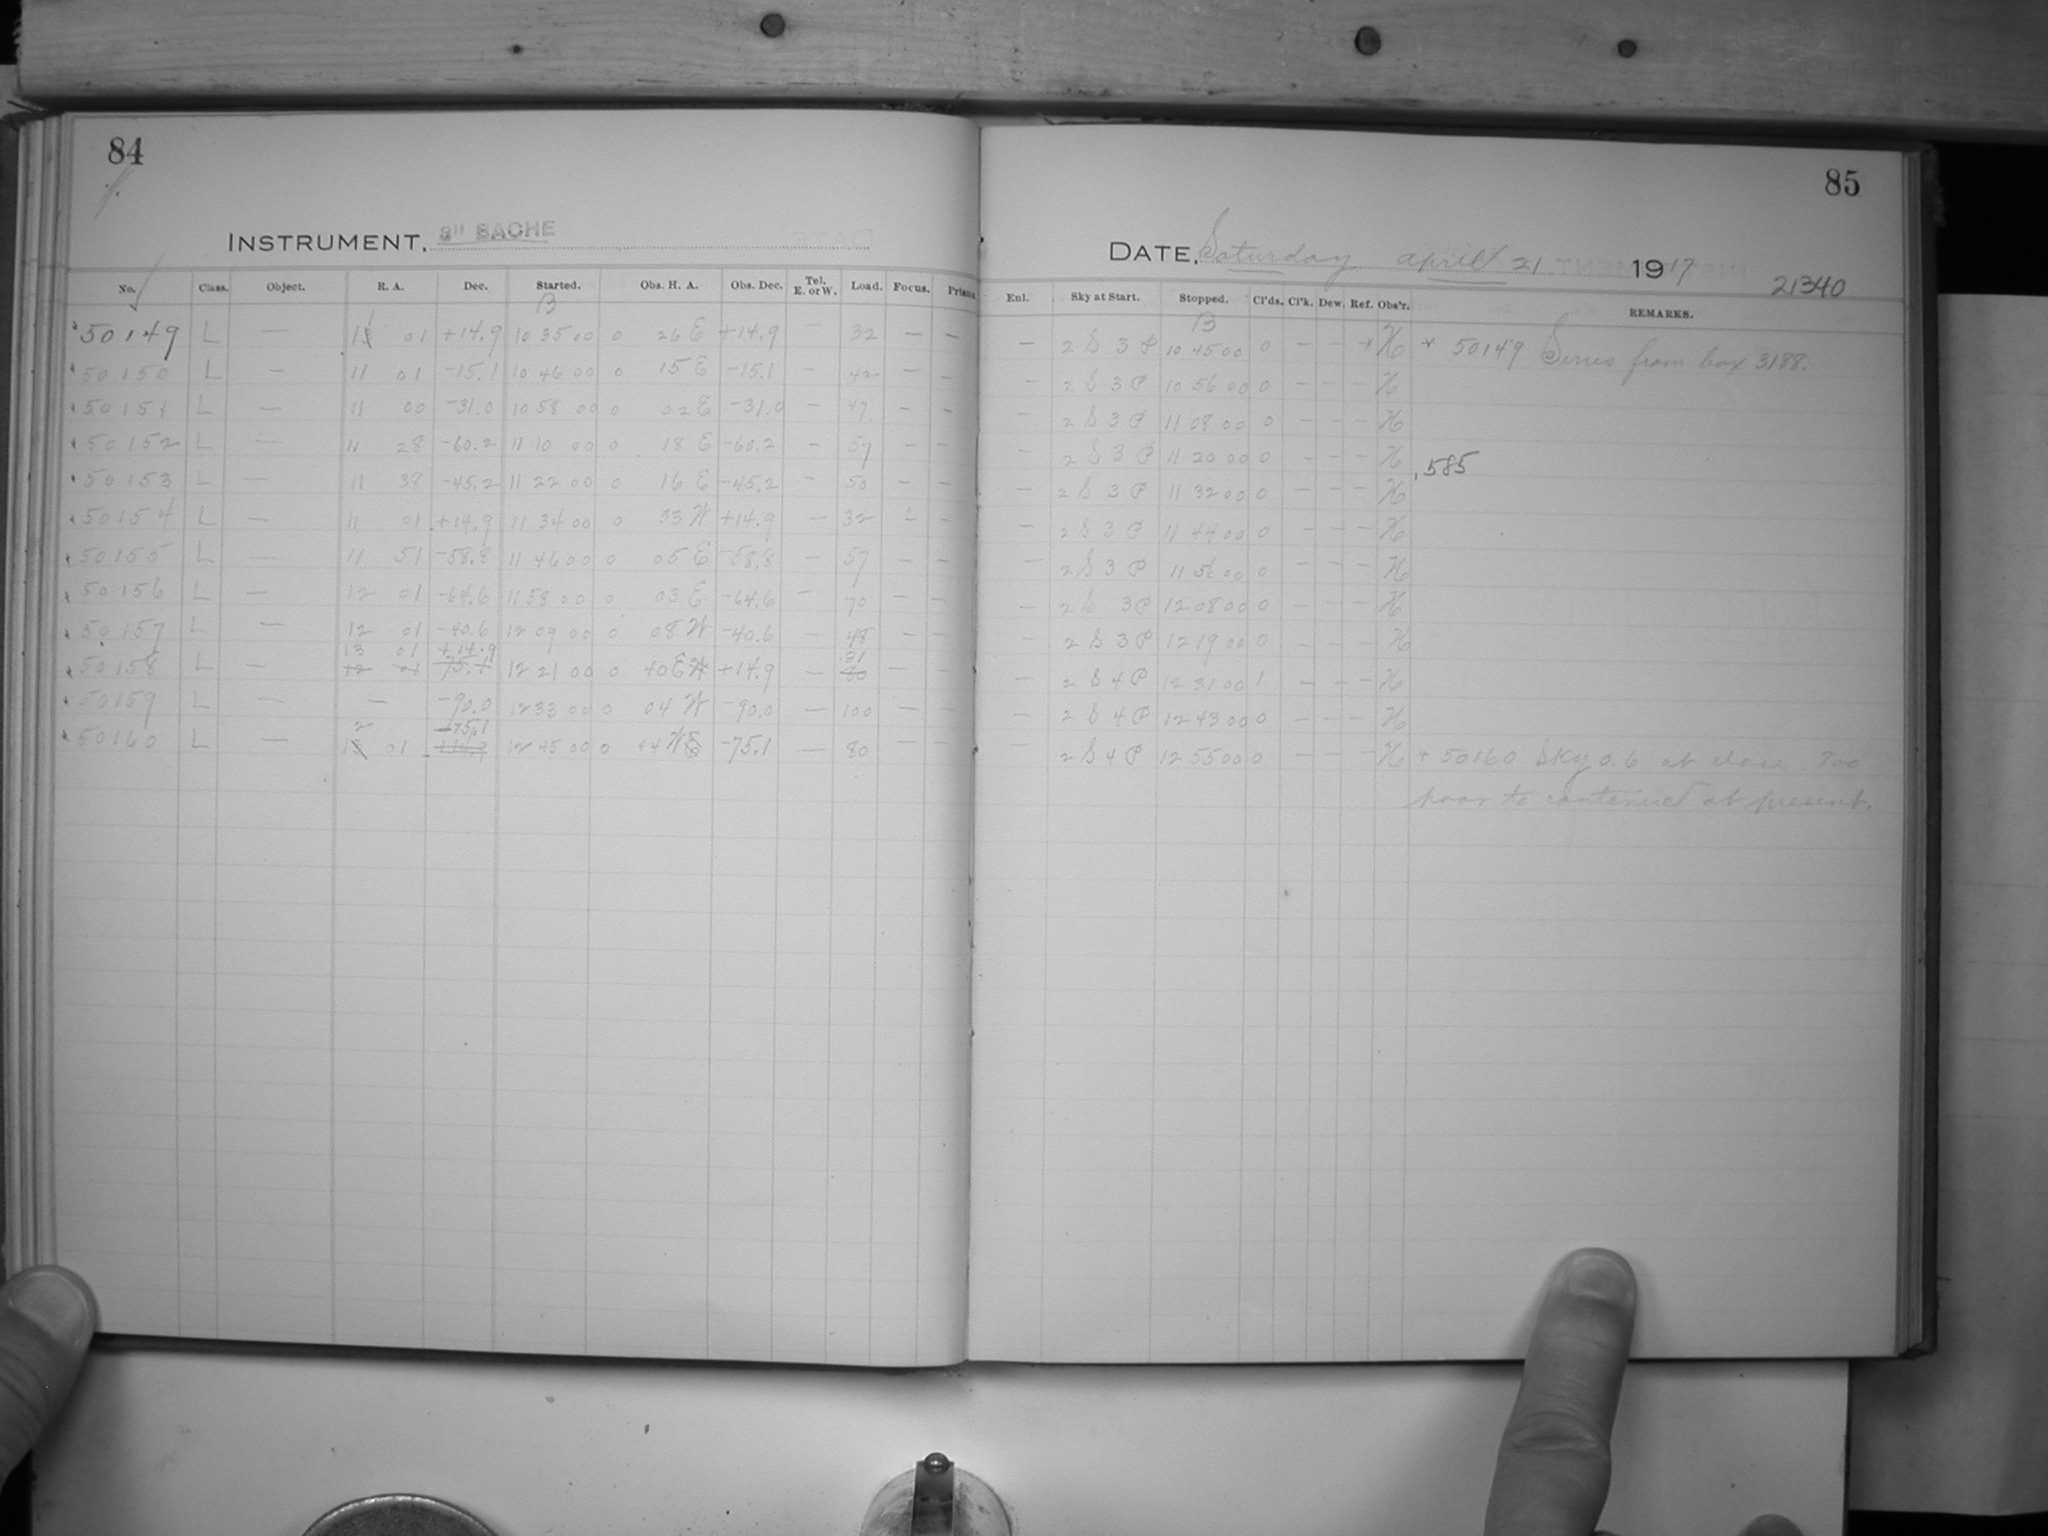 84
INSTRUMENT, 8" BACHE
No. Class. Object. R. A. Dec. Started. Obs. H. A. Obs. Dec. Tel. E. or W. Load. Focus. Prism
B
50149 L — 11 01 +14.9 10 35 00 0 26 E +14.9 — 32 — —
50150 L — 11 01 -15.1 10 46 00 0 15 E -15.1 — 42 — —
50151 L — 11 00 -31.0 10 58 00 0 02 E -31.0 — 47 — —
50152 L — 11 28 -60.2 11 10 00 0 18 E -60.2 — 57 — —
50153 L — 11 38 -45.2 11 22 00 0 16 E -45.2 — 50 — —
50154 L — 11 01 +14.9 11 34 00 0 33 W +14.9 — 32 — —
50155 L — 11 51 -58.8 11 46 00 0 05 E -58.8 — 57 — —
50156 L — 12 01 -64.6 11 58 00 0 03 E -64.6 — 70 — —
50157 L — 12 01 -40.6 12 09 00 0 08 W -40.6 — 48 — —
13 01 +14.9 31
50158 L — 12 01 75.1 12 21 00 0 40 E W +14.9 — 80 — —
50159 L — — -90.0 12 33 00 0 04 W -90.0 — 100 — —
2 -75.1
50160 L — 13 01 +14.9 12 45 00 0 44 W E -75.1 — 80 — —
85
DATE, Saturday april 21 1917
21340
Enl. Sky at Start. Stopped. Cl'ds. Cl'k. Dew. Ref. Obs'r. REMARKS.
B
— 2 S 3 P 10 45 00 0 — — * H * 50149 Series from box 3188.
— 2 S 3 P 10 56 00 0 — — — H
— 2 S 3 P 11 08 00 0 — — — H
— 2 S 3 P 11 20 00 0 — — — H .585
— 2 S 3 P 11 32 00 0 — — — H
— 2 S 3 P 11 44 00 0 — — — H
— 2 S 3 P 11 56 00 0 — — — H
— 2 S 3 P 12 08 00 0 — — — H
— 2 S 3 P 12 19 00 0 — — — H
— 2 S 4 P 12 31 00 1 — — — H
— 2 S 4 P 12 43 00 0 — — — H
— 2 S 4 P 12 55 00 0 — — — H + 50160 Sky 0.6 at close. Too
poor to continued at present.